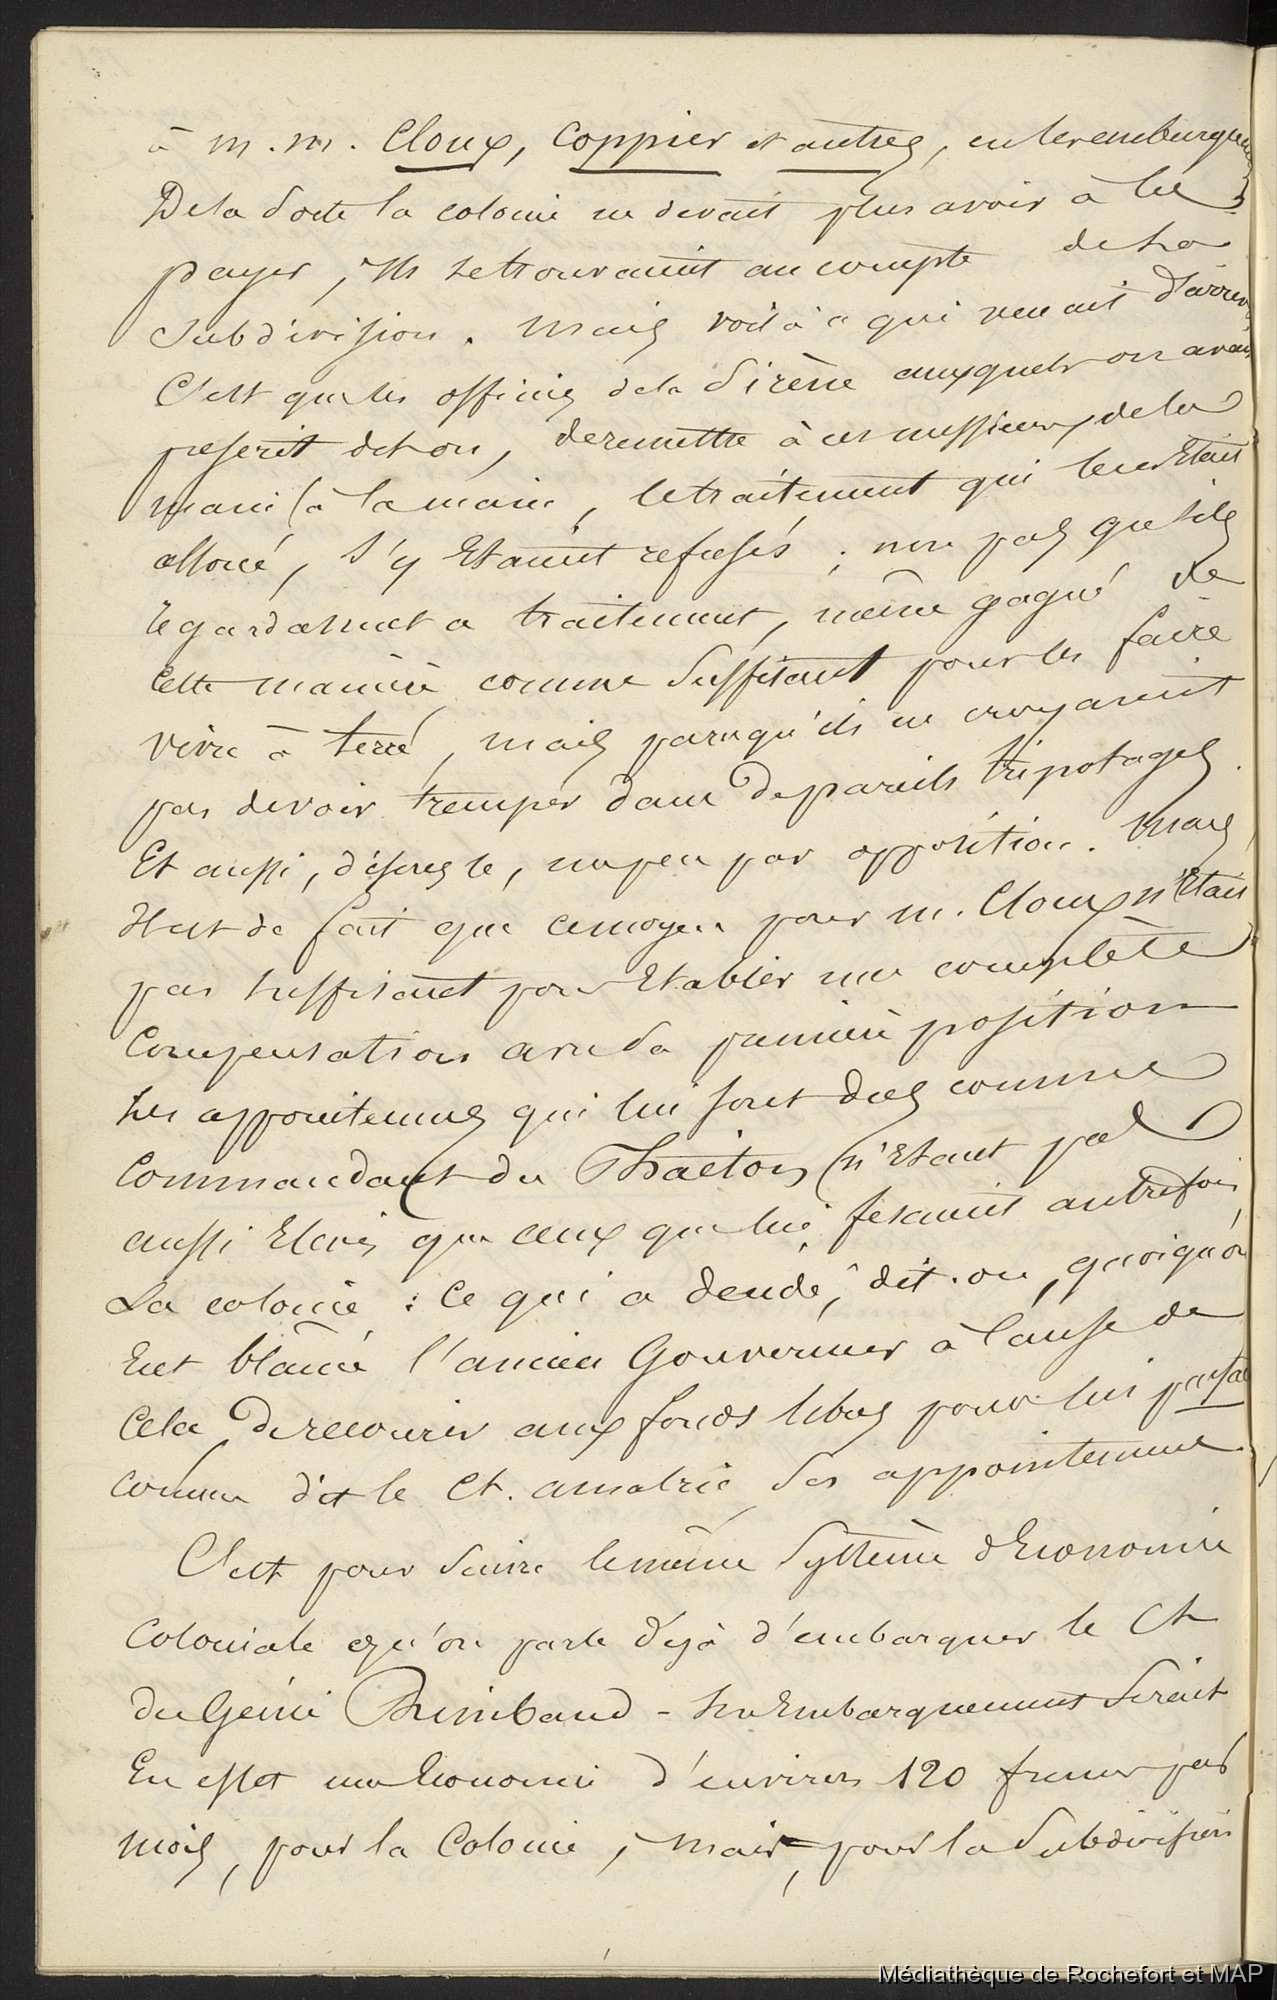 à m.m. Cloux, Coppier et autres, en les embarquant
De la sorte la colonie ne devait plus avoir à les
payer, ils se trouvaient au compte de la
subdivision. mais voilà ce qui venait d'arriver,
C'est que les officiers de la Sirène auxquels on avait
prescrit dit-on, de remettre à ces messieurs, de la
main à la main, le traitement qui leur Etait
alloué, s'y Etaient refusés ; non pas qu'ils
regardassent ce traitement, même gagné de
cette manière comme suffisant pour les faire
vivre à terre, mais parcequ'ils ne croyaient
pas devoir tremper dans de pareils tripotages.
Et aussi, disons le, un peu par opposition. Mais
Il est de fait que ce moyen pour m. Cloux n'Etait
pas suffisant pour Etablir une complète
Compensation avec sa première position
les appointemens qui lui sont dus comme
Commandant du Phaëton n'Etant pas
aussi Elevés que ceux que lui fesaient autrefois
La colonie : Ce qui a décidé, dit-on, quoiqu'on
Eut blâmé l'ancien Gouverneur à cause de
Cela, de recourir aux fonds libres pour lui parfaire
comme dit le Ct. amalric ses appointemens
C'est pour suivre le même Système d'Economie
Coloniale qu'on parle déjà d'embarquer le Ct
du Génie Rimbaud - son Embarquement serait
En effet une Economie d'environ 120 francs par
mois, pour la Colonie, mais, pour la Subdivision
Médiathèque de Rochefort et MAP